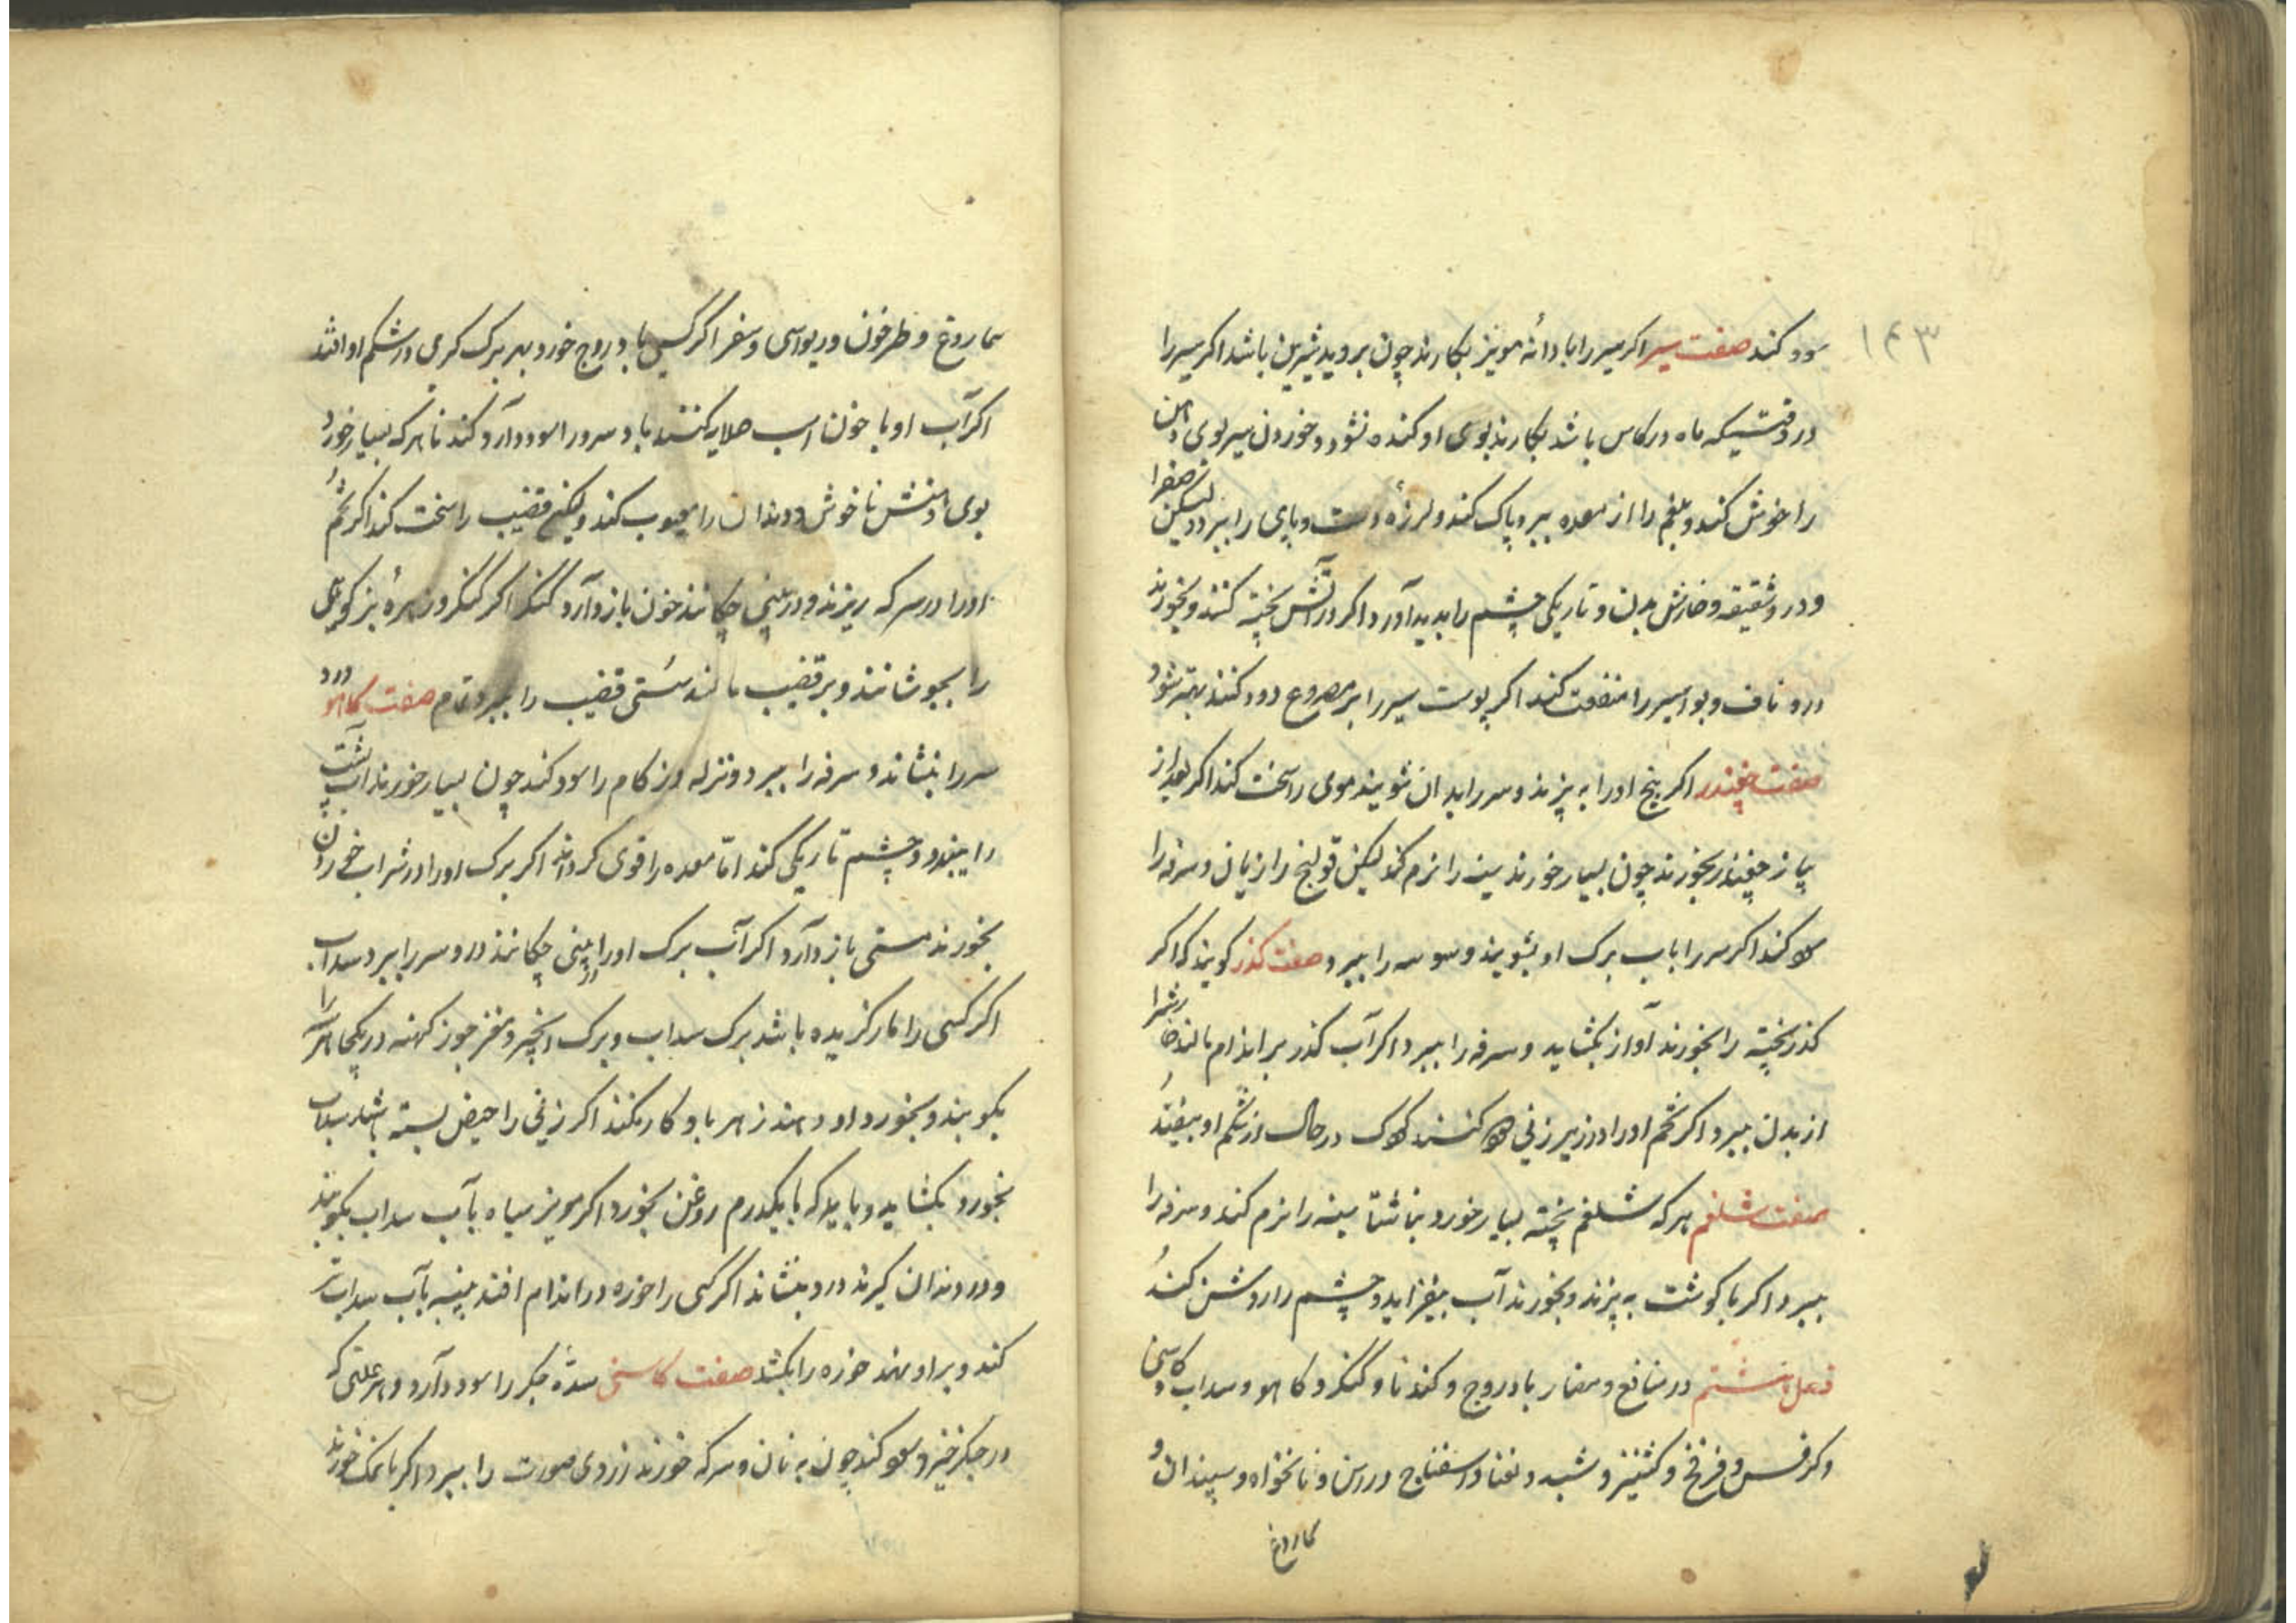 ۱۴۳
سود کند صفت سیر اکر سیر را با دانه مویز بکارند چون بروید شیرین باشد اکر سیر را
در وقتیکه ماه در کاس باشد بکارند بوی او کنده نشود و خوردن سیر بوی دهن
را خوش کند و بلغم را از معده ببرد پاک کند و لرزهٔ دست و پای را ببرد و لیکن صفرا
و درد شقیقه و خارش بدن و تاریکی چشم را پدید آورد اکر در آتش پخته کنند و بخورند
درد ناف و بواسیر را منفعت کند اکر پوست سیر را بر مصروع دود کنند بهتر شود
صفت چغندر اکر بیخ اورا به پزند و سر را بدان شویند موی را سخت کند اکر بعد از
پیاز چغندر بخورند چون بسیار خورند سینه را نرم کند لیکن قولنج را زیان و سرفه را
کند اکر سر را باب برک او بشویند و سبوسه را ببرد صفت کذر کویند که اکر
کذر پخته را بخورند آواز بکشاید و سرفه را ببرد اکر آب کذر بر اندام مالند خارش را
از بدن ببرد اکر تخم اورا در زیر زنی کنند کودک در حال از شکم او بیفتد
صفت شلغم هر که شلغم پخته بسیار خورد بناشتا سینه را نرم کند و سرفه را
ببرد اکر با کوشت به پزند و بخورند آب بیفزاید و چشم را روشن کند
فصل هشتم در منافع و مضار بادروج و کندنا و کنکر و کاهو و سداب و کاسنی
و کرفس و فرفخ و کشنیز و شبد و نعنا و اسفناج و راسن و نانخواه و سپندان و
سماروغ
سماروغ و طرخون و ریواس و سعتر اکر کسی بادروج خورد بهر برک کرمی در شکم او افتد
اکر آب او با خون اسب صلایه کنند باد سرد را سود دارد کندنا هر که بسیار خورد
بوی دهنش ناخوش و دندان را معیوب کند ولیکن قضیب را سخت کند اکر تخم
اورا در سرکه ریزند و در بینی چکانند خون باز دارد کنکر اکر کنکر و زهرهٔ بز کوهی
را بجوشانند و بر قضیب مالند سستی قضیب را ببرد تمام صفت کاهو درد
سر را بنشاند و سرفه را ببرد و نزله و زکام را سود کند چون بسیار خورند آب پشت
را ببندد و چشم تاریکی کند اما معده را قوی کرداند اکر برک اورا در شراب خوردن
بخورند مستی باز دارد اکر آب برک اورا در بینی چکانند درد سر را ببرد سداب
اکر کسی را مار کزیده باشد برک سداب و برک انجیر و مغز جوز کهنه در یکجا هر سه را
بکوبند و بخورد او دهند زهر باو کار نکند اکر زنی را حیض بسته باشد سداب
بخورد بکشاید و باید که با یکدرم روغن بخورد اکر مویز سیاه باآب سداب بکوبند
و در دندان کیرند درد بنشاند اکر کسی را خوره در اندام افتد پنبه بآب سداب تر
کند و بر او نهند خوره را بکشد صفت کاسنی سدهٔ جکر را سود دارد و هر علتی که
در جکر خیزد سود کند چون به نان و سرکه خورند زردی صورت را ببرد اکر با نمک خورند